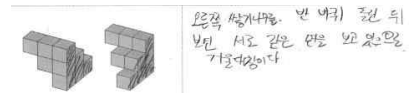 오른쪽 쌓기나무를 반 바퀴 돌린 뒤
보면 서로 같은 면을 보고 있으므로
거울대칭이다